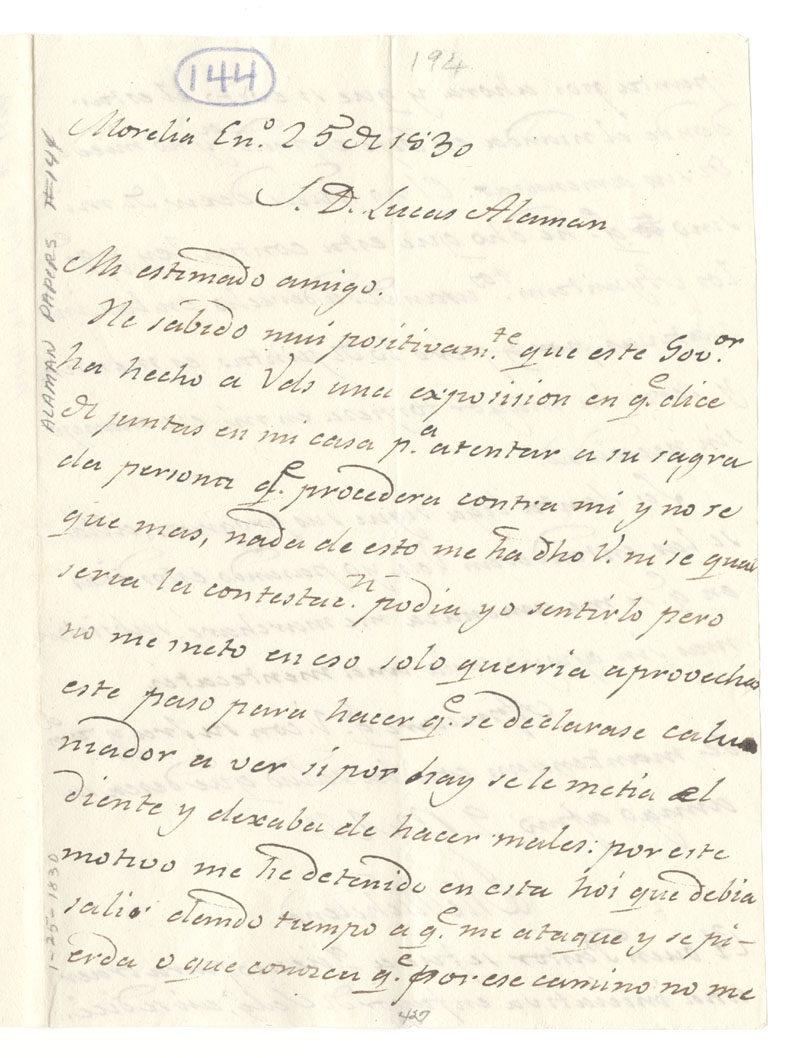 144
194
Morelia En.º 25 de 1830
S. D. Lucas Alaman
Mi estimado amigo.
He sabido mui positivam.te que este Gov.or
ha hecho a Vds una exposision en q.e dice
de juntas en mi casa p.a atentar a su sagra
da persona q.e procedera contra mi y no se
que mas, nada de esto me ha dho V. ni se qual
seria la contestac.n podia yo sentirlo pero
no me meto en eso solo querria aprovechar
este paso para hacer q.e se declarase calum
niador a ver si por hay se le metia el
diente y dexaba de hacer males: por este
motivo me he detenido en esta hoi que debia
salir dando tiempo a q.e me ataque y se pi-
erda o que conozca q.e por ese camino no me
427
ALAMAN PAPERS #144
1-25-1830